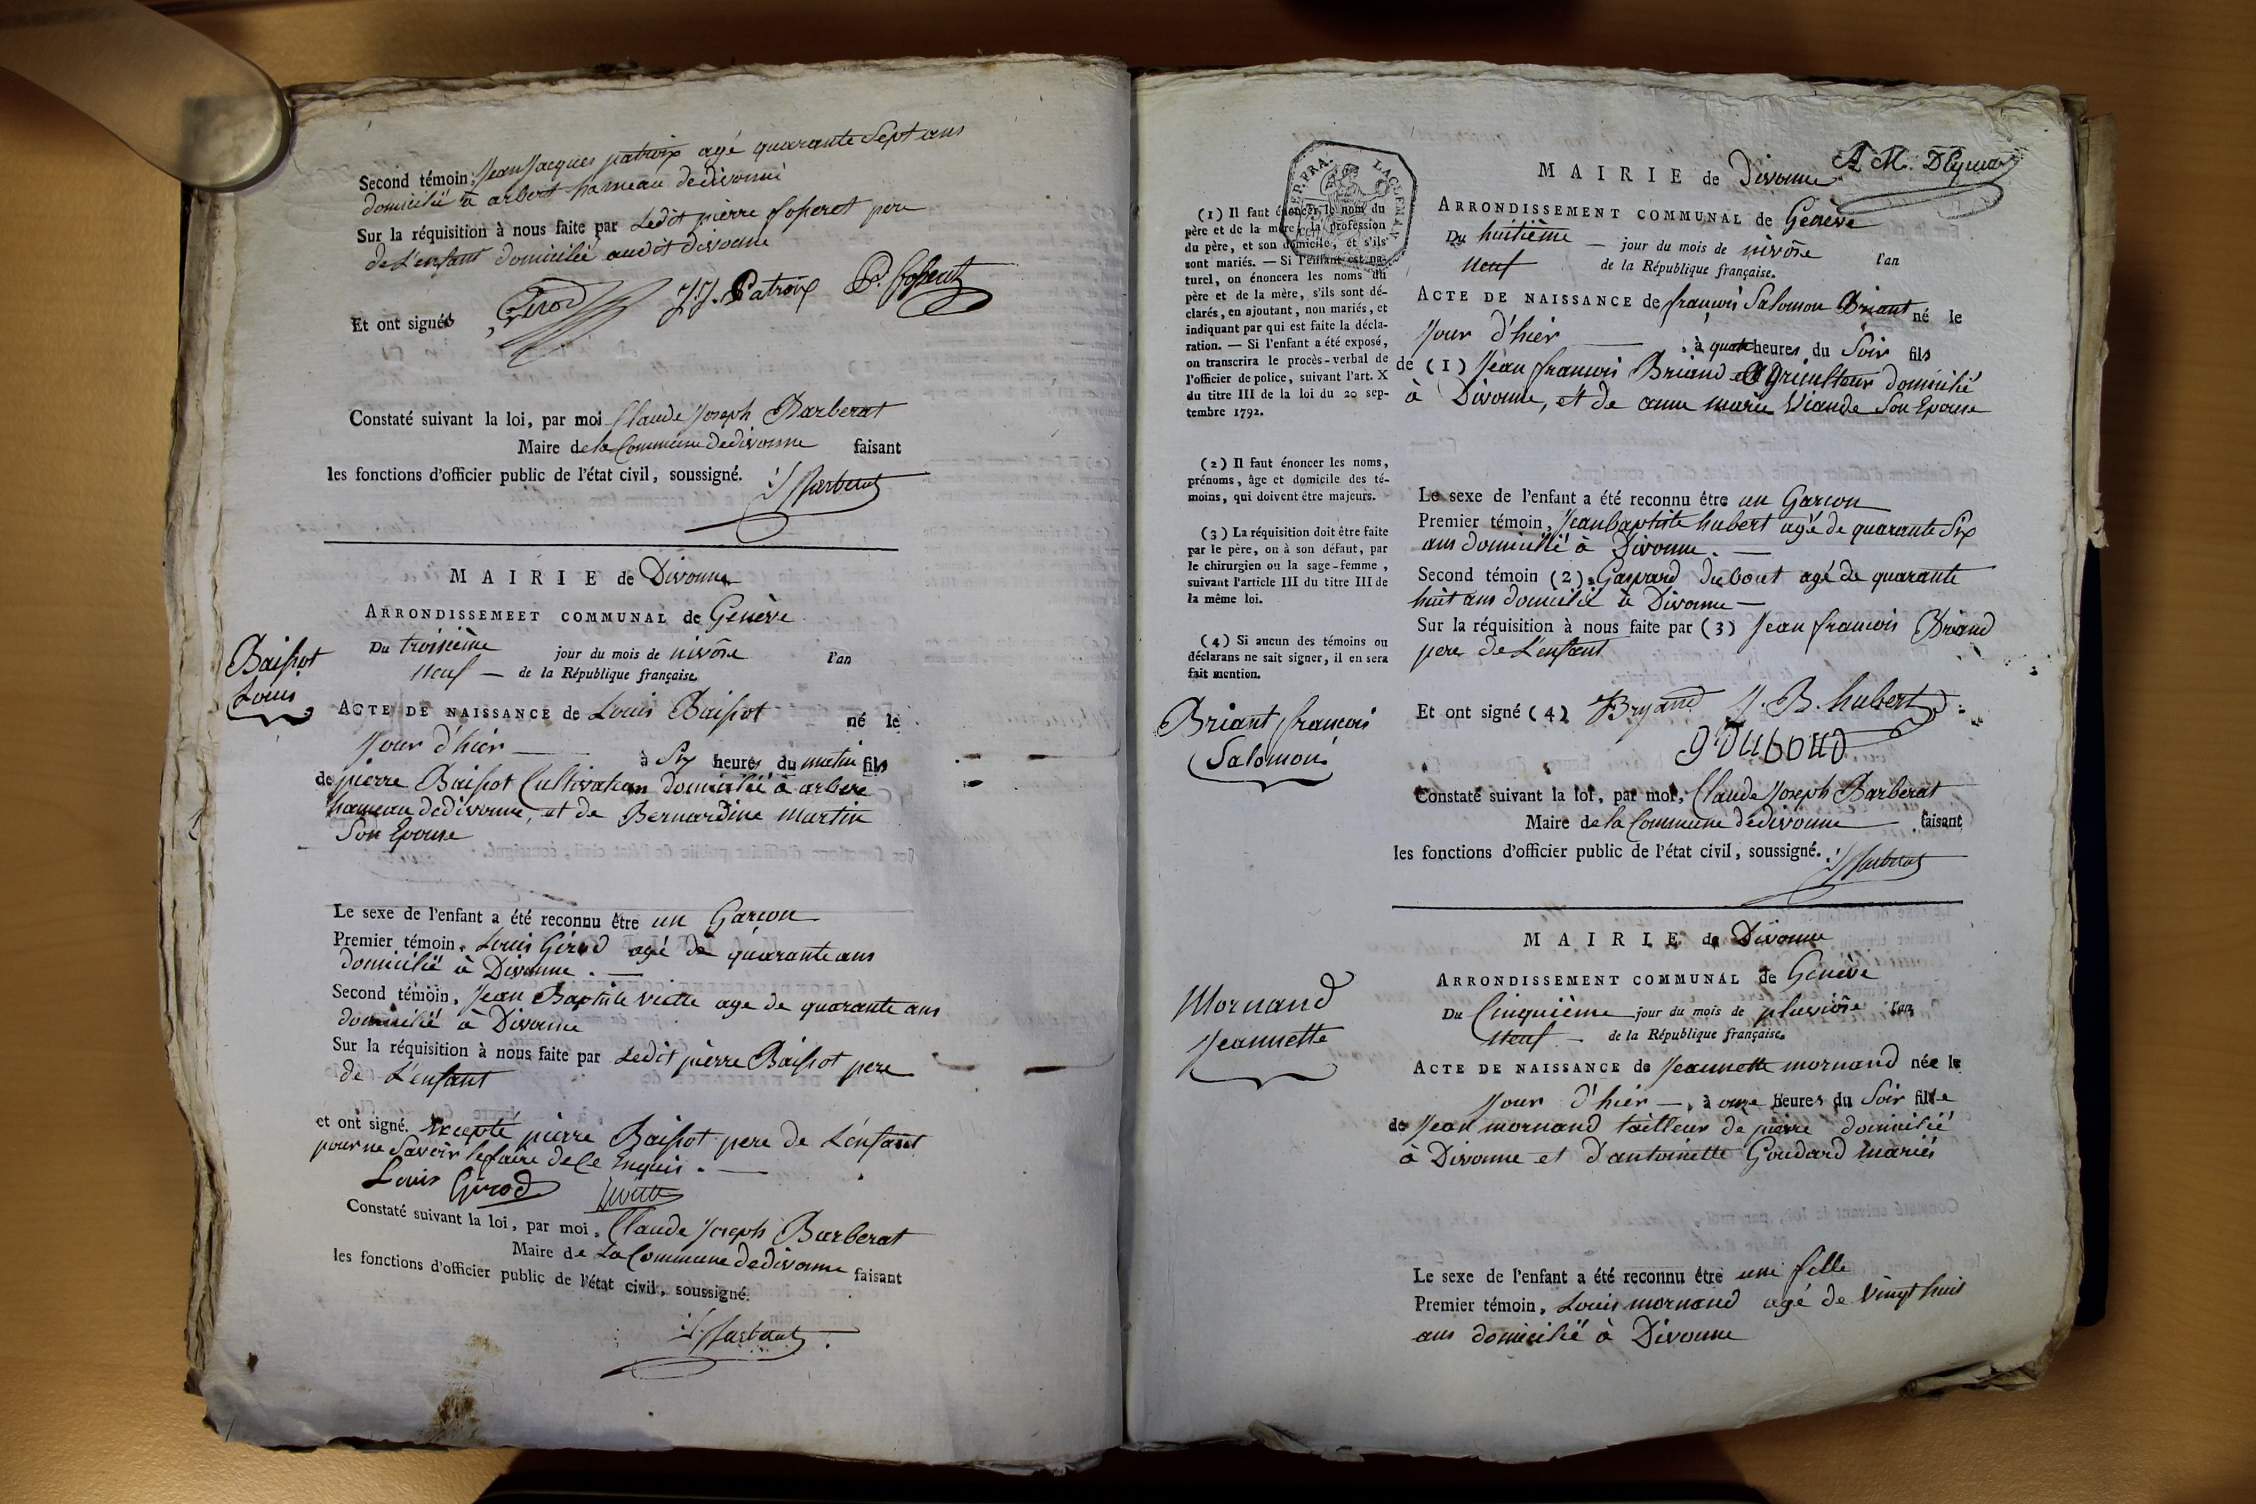 Second témoin, Jean Jacques patroix agé quarante Sept ans
domicilié à arbert hameau dedivonne
Sur la réquisition à nous faite par Ledit pierre fosseret pere
de L'enfant domicilié audit divonne
Et ont signés Girod J. J. Patroix
Constaté suivant la loi, par moi Claude Joseph Barberat
Maire de la Commune dedivonne faisant
les fonctions d'officier public de l'état civil, soussigné. Barberat
MAIRIE de Divonne
ARRONDISSEMEET COMMUNAL de Genève
Du troisième jour du mois de nivôse l'an
neuf — de la République française.
Baissot
Louis
ACTE DE NAISSANCE de Louis Baissot né le
Jour d'hier — à Six heures du matin fils
de pierre Baissot Cultivateur domicilié à arbere
hameau dedivonne, et de Bernardine Martin
Son Epouse
Le sexe de l'enfant a été reconnu être un Garcon
Premier témoin, Louis Girod agé de quarante ans
domicilié à Divonne. —
Second témoin, Jean Baptiste viette age de quarante ans
domicilié à Divonne
Sur la réquisition à nous faite par Ledit pierre Baissot pere
de L'enfant
et ont signé. Excepté pierre Baissot pere de L'enfant
pour ne Savoir le faire de Ce Enquis. —
Louis Girod viette
Constaté suivant la loi, par moi, Claude Joseph Barberat
Maire de La Commune dedivonne faisant
les fonctions d'officier public de l'état civil, soussigné.
Barberat
MAIRIE de Divonne
ARRONDISSEMENT COMMUNAL de Genève
Du huitième — jour du mois de nivôse l'an
neuf de la République française.
ACTE DE NAISSANCE de françois Salomon Briant né le
Jour d'hier — , à quatre heures du Soir fils
de (1) Jean francois Briand Agriculteur domicilié
à Divonne, et de anne marie Viande Son Epouse
(1) Il faut énoncer le nom du
père et de la mère, la profession
du père, et son domicile, et s'ils
sont mariés. — Si l'enfant est na-
turel, on énoncera les noms du
père et de la mère, s'ils sont dé-
clarés, en ajoutant, non mariés, et
indiquant par qui est faite la décla-
ration. — Si l'enfant a été exposé,
on transcrira le procès-verbal de
l'officier de police, suivant l'art. X
du titre III de la loi du 20 sep-
tembre 1792.
(2) Il faut énoncer les noms,
prénoms, âge et domicile des té-
moins, qui doivent être majeurs.
(3) La réquisition doit être faite
par le père, ou à son défaut, par
le chirurgien ou la sage-femme,
suivant l'article III du titre III de
la même loi.
(4) Si aucun des témoins ou
déclarans ne sait signer, il en sera
fait mention.
Le sexe de l'enfant a été reconnu être un Garcon
Premier témoin, Jean baptiste hubert agé de quarante Six
ans domicilié à Divonne. —
Second témoin (2), Gaspard dubout agé de quarante
huit ans domicilié à Divonne —
Sur la réquisition à nous faite par (3) Jean francois Briand
pere de L'enfant
Et ont signé (4) Bryand J. B. hubert
g. duboud
Briant francois
Salomon
Constaté suivant la loi, par moi, Claude Joseph Barberat
Maire de la Commune dedivonne faisant
les fonctions d'officier public de l'état civil, soussigné. Barberat
MAIRIE de Divonne
ARRONDISSEMENT COMMUNAL de Genève
Du Cinquième jour du mois de pluviôse l'an
neuf — de la République française.
Mornand
Jeannette
ACTE DE NAISSANCE de Jeannette mornand née le
Jour d'hier —, à onze heures du Soir fille
de Jean mornand tailleur de pierre domicilié
à Divonne et d'antoinette Goudard mariés
Le sexe de l'enfant a été reconnu être une fille
Premier témoin, Louis mornand agé de vingt huit
ans domicilié à Divonne